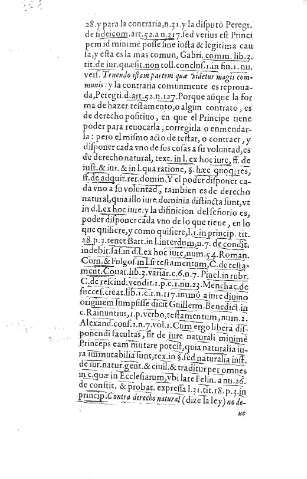 28. y para la contraria, n. 31. y la disputò Peregr.
de fideicom. art. 52. à n. 117. sed verius est Princi
pem id minimè posse sine iusta & legitima cau
sa, y esta es la mas comun, Gabri. comm. lib. 2.
tit. de iur. quæsit. non toll. conclus. 1. in fin. 1. nu.
vers. Tenendo istam partem quæ videtur magis com-
munis: y la contraria comunmente es reproua-
da, Peregri. d. art. 52. n. 127. Porque aũque la for
ma de hazer testamento, o algun contrato, es
de derecho positiuo, en que el Principe tiene
poder para reuocarla, corregirla o enmendar-
la: pero el mismo acto de testar, o contraer, y
disponer cada vno de sus cosas a su voluntad, es
de derecho natural, text. in l. ex hoc iure, ff. de
iust. & iur. & in l. qua ratione, §. hæc quoq; res,
ff. de adquir. rer. domin. Y el poder disponer ca-
da vno a su voluntad, tambien es de derecho
natural, quia illo iure dominia distincta sunt, vt
in d. l. ex hoc iure, y la difinicion del señorio es,
poder disponer cada vno de lo que tiene, en lo
que quisiere, y como quisiere, l. 1. in princip. tit.
28. p. 3. tenet Bart. in l. interdum n. 7. de condic.
indebit. Iass. in d. l. ex hoc iure, num. 54. Roman.
Corn. & Fulgos. in l. si testamentum, C. de testa
ment. Couar. lib. 3. variar. c. 6. n. 7. Pinel. in rubr.
C. de rescind. vendit. 1. p. c. 1. nu. 23. Menchac. de
succes. creat. lib. 1. c. 1. n. 117. immò à iure diuino
originem sumpsisse dicit Guillerm. Benedict. in
c. Rainuntius, 1. p. verbo, testamentum, num. 2.
Alexand. conf. 1. n. 7. vol. 1. Cum ergo libera dis-
ponendi facultas, sit de iure naturali minimè
Princeps eam mutare potest, quia naturalia iu-
ra immutabilia sunt, tex. in §. sed naturalia inst.
de iur. natur. gent. & ciuil. & traditur per omnes
in c. quæ in Ecclesiarum, vbi late Felin. à nu. 26.
de constit. & probat. expressa l. 31. tit. 18. p. 3. in
princip. Contra derecho natural (dize la ley) no de-
ue